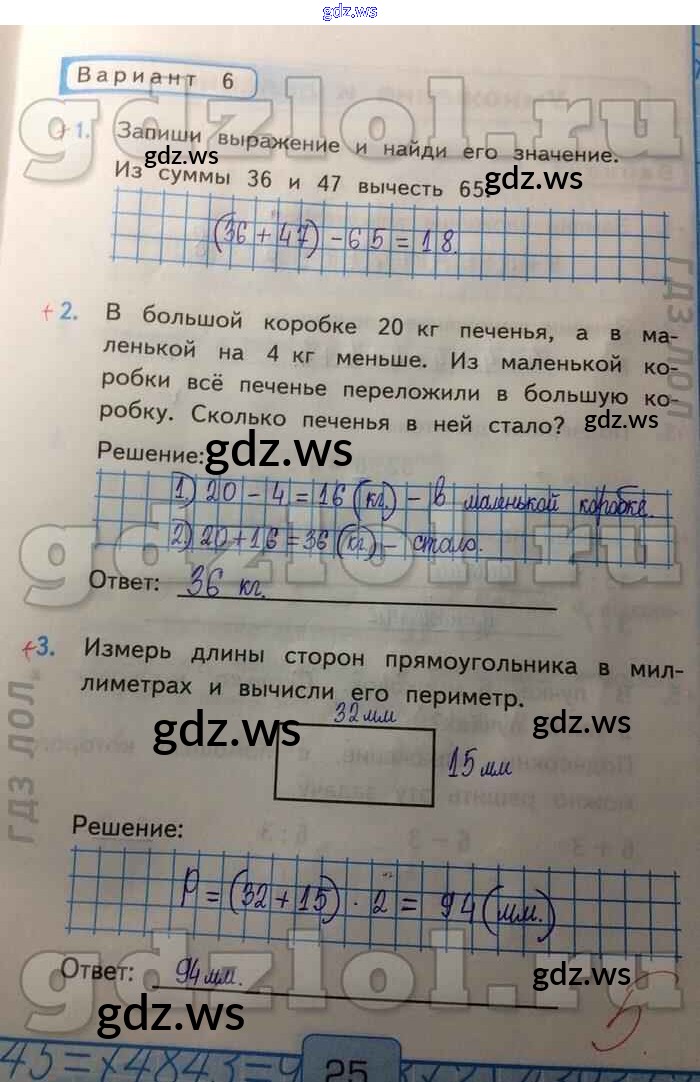 gdz.ws
Вариант 6
gdzlol.ru
+ 1. Запиши выражение и найди его значение.
gdz.ws
Из суммы 36 и 47 вычесть 65.
gdz.ws
(36 + 47) - 65 = 18.
ГДЗ ЛОЛ
+ 2. В большой коробке 20 кг печенья, а в ма-
ленькой на 4 кг меньше. Из маленькой ко-
робки всё печенье переложили в большую ко-
робку. Сколько печенья в ней стало?
gdz.ws
Решение:
gdz.ws
1) 20 - 4 = 16 (кг.) - в маленькой коробке.
2.) 20 + 16 = 36 (кг) - стало.
gdzlol.ru
Ответ: 36 кг.
+ 3. Измерь длины сторон прямоугольника в мил-
лиметрах и вычисли его периметр.
ГДЗ ЛОЛ
32 мм
gdz.ws
gdz.ws
15 мм
Решение:
P = (32 + 15) · 2 = 94 (мм.)
gdzlol.ru
Ответ: 94 мм.
gdz.ws
gdz.ws
5
25